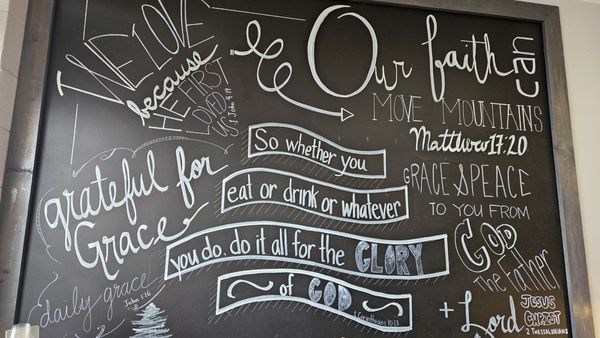 WE LOVE
because
HE FIRST
LOVED
US
1 John 4:19
Our faith can
MOVE MOUNTAINS
Matthew 17:20
So whether you
eat or drink or whatever
you do, do it all for the GLORY
of GOD
1 Corinthians 10:13
grateful for
Grace
daily grace
John 1:16
GRACE & PEACE
TO YOU FROM
GOD
The Father
+ Lord
JESUS
CHRIST
2 THESSALONIANS